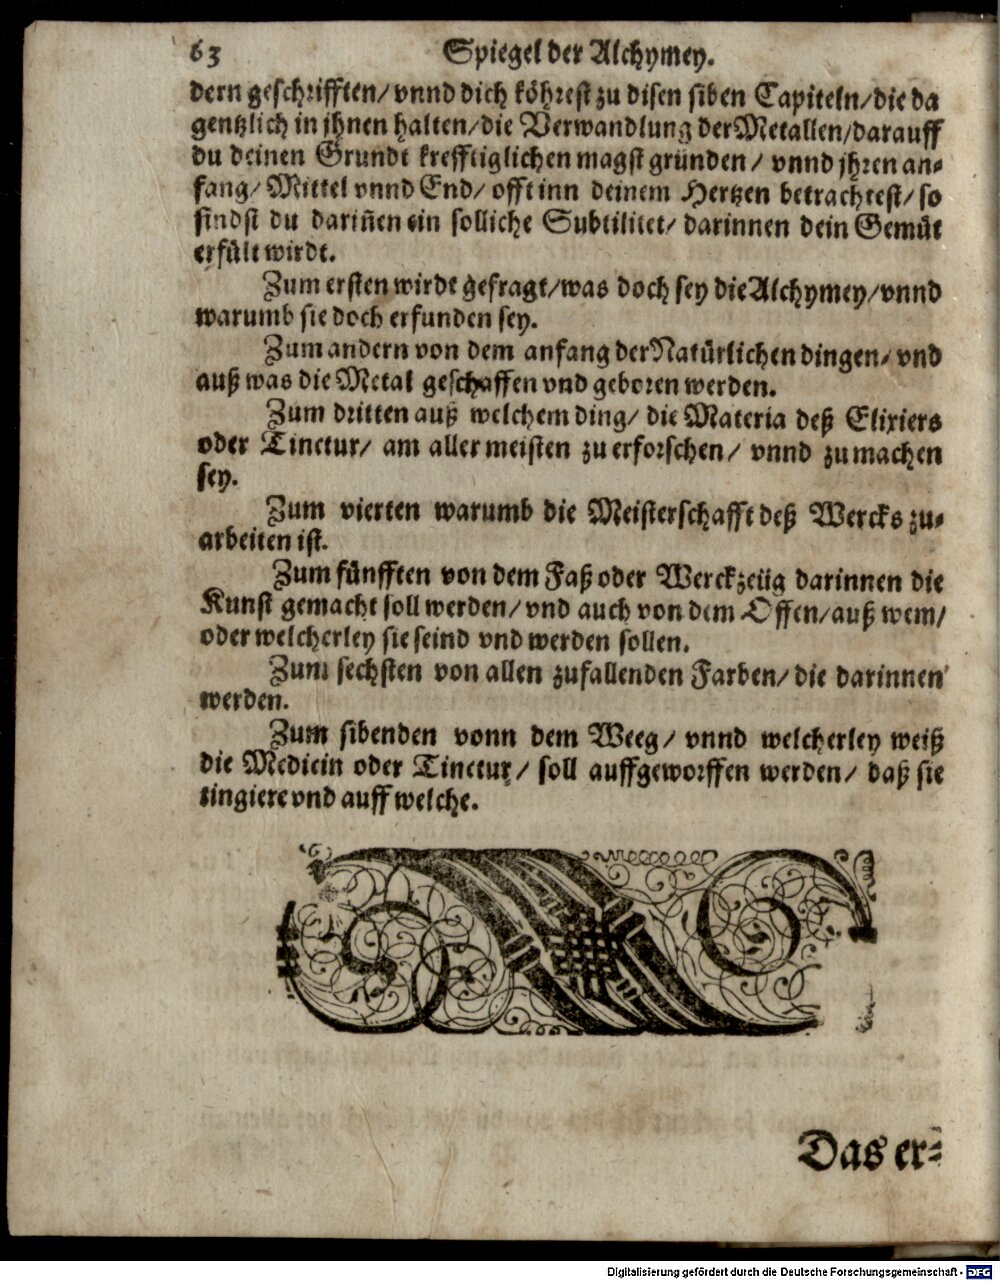 63 Spiegel der Alchymey.
dern geschrifften/ vnnd dich köhrest zu disen siben Capiteln/ die da
gentzlich in jhnen halten/ die Verwandlung der Metallen/ darauff
du deinen Grundt krefftiglichen magst gründen/ vnnd jhren an-
fang/ Mittel vnnd End/ offt inn deinem Hertzen betrachtest/ so
findst du dariñen ein solliche Subtilitet/ darinnen dein Gemüt
erfült wirdt.
Zum ersten wirdt gefragt/ was doch sey die Alchymey/ vnnd
warumb sie doch erfunden sey.
Zum andern von dem anfang der Natürlichen dingen/ vnd
auß was die Metal geschaffen vnd geboren werden.
Zum dritten auß welchem ding/ die Materia deß Elixiers
oder Tinctur/ am aller meisten zu erforschen/ vnnd zu machen
sey.
Zum vierten warumb die Meisterschafft deß Wercks zu-
arbeiten ist.
Zum fünfften von dem Faß oder Werckzeüg darinnen die
Kunst gemacht soll werden/ vnd auch von dem Offen/ auß wem/
oder welcherley sie seind vnd werden sollen.
Zum sechsten von allen zufallenden Farben/ die darinnen
werden.
Zum sibenden vonn dem Weeg/ vnnd welcherley weiß
die Medicin oder Tinctur/ soll auffgeworffen werden/ daß sie
tingiere vnd auff welche.
Das er-
Digitalisierung gefördert durch die Deutsche Forschungsgemeinschaft - DFG